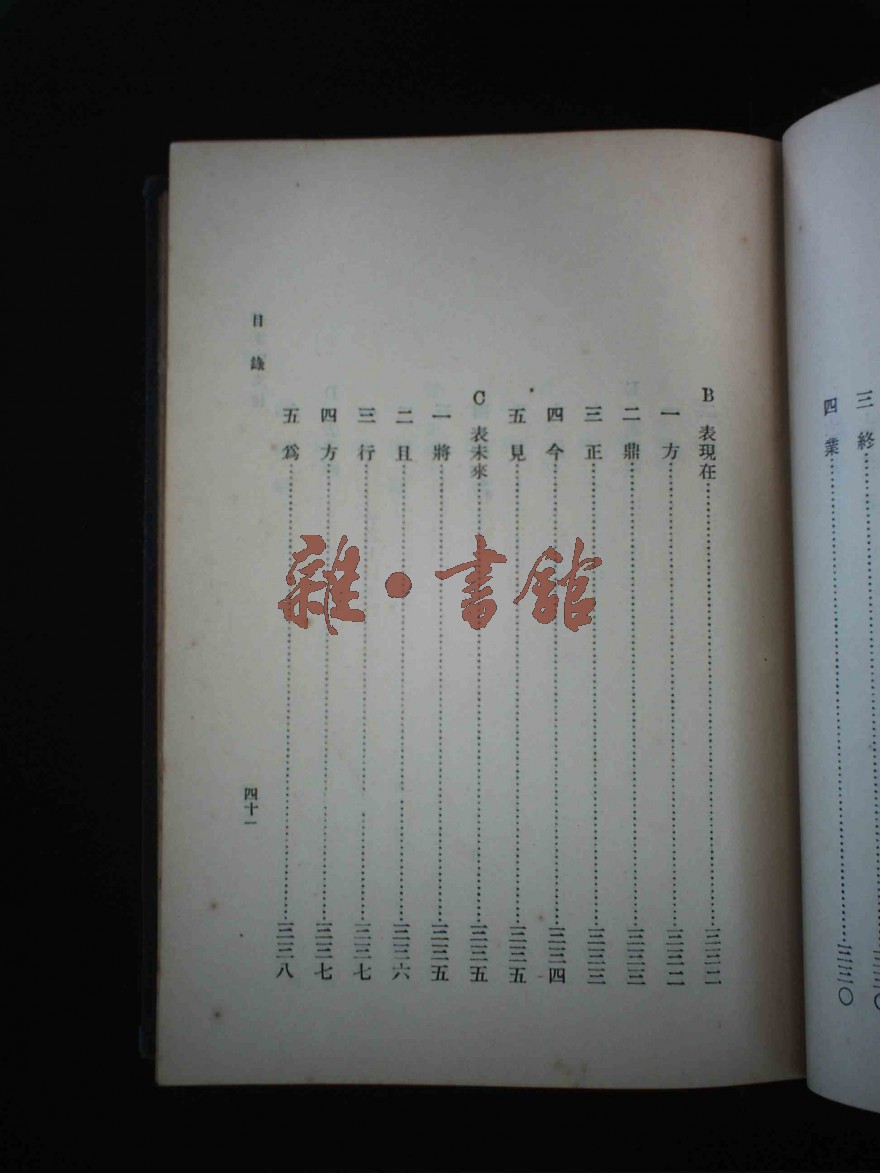 三 終……三三〇
四 業……三三〇
B 表現在……三三二
一 方……三三二
二 鼎……三三三
三 正……三三三
四 今……三三四
五 見……三三五
C 表未來……三三五
一 將……三三五
二 且……三三六
三 行……三三七
四 方……三三七
五 爲……三三八
目錄
四十一
雜·書館